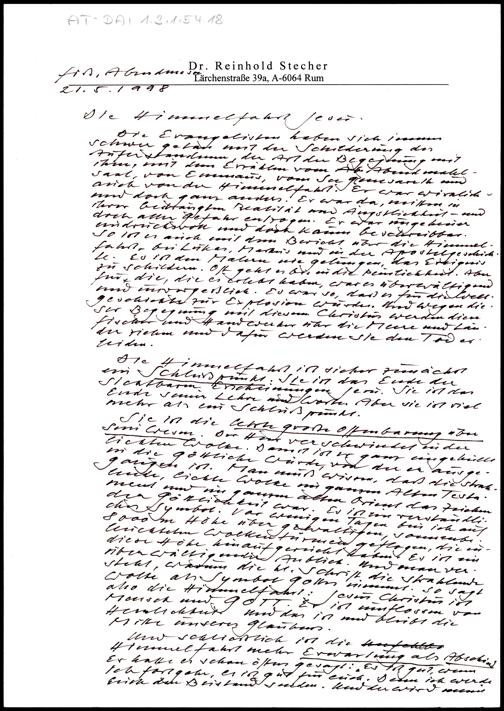 AT-DAI 1.2.1.54.18
Dr. Reinhold Stecher
Lärchenstraße 39a, A-6064 Rum
Fiß, Abendmesse
21.5.1998
Die Himmelfahrt Jesu.
Die Evangelisten haben sich immer
schwer getan mit der Schilderung des
Auferstandenen, der Art der Begegnung mit
ihm, mit dem Erzählen vom Abendmahl-
saal, von Emmaus, vom See Genesareth und
auch von der Himmelfahrt. Er war wirklich -
und doch ganz anders. Er war da, mitten in
ihrer bedrängten Realität und Ängstlichkeit - und
doch aller Gefahr entzogen. Er war ungeheuer
eindrucksvoll und doch kaum beschreibbar.
So ist es auch mit dem Bericht über die Himmel-
fahrt, bei Lukas, Markus und in der Apostelgeschich-
te. Es ist den Malern nie gelungen, das Ereignis
zu schildern. Oft geht es bis in die Peinlichkeit. Aber
für die, die es erlebt haben, war es überwältigend
und unvergeßlich. Es war so, daß es für die Welt-
geschichte zur Explosion wurde. Und wegen die-
ser Begegnung mit diesem Christus werden die
Fischer und Handwerker über die Meere und Län-
der ziehen und dafür werden sie den Tod er-
leiden.
Die Himmelfahrt ist sicher zunächst
ein Schlußpunkt: Sie ist das Ende der
sichtbaren Erscheinungen Jesu. Sie ist das
Ende seiner Lehre und Worte. Aber sie ist viel
mehr als ein Schlußpunkt.
Sie ist die letzte große Offenbarung über
sein Wesen. Der Herr verschwindet in der
lichten Wolke. Damit ist er ganz eingehüllt
in die göttliche Würde, von der er ausge-
gangen ist. Man muß wissen, daß die strah-
lende, lichte Wolke im ganzen Alten Testa-
ment und im ganzen alten Orient das Zeichen
der Göttlichkeit war. Es ist ein verständli-
ches Symbol. Vor wenigen Tagen bin ich auf
8000 m Höhe über gewaltigen sonnenbe-
leuchteten Wolkentürmen geflogen, die in
diese Höhe hinaufgereicht haben. Es ist ein
überwältigender Anblick. Und man ver-
steht, warum die hl. Schrift die strahlende
Wolke als Symbol Gottes nimmt. So sagt
also die Himmelfahrt: Jesus Christus ist
Mensch und GOTT. Er ist umflossen von
Herrlichkeit. Und das ist und bleibt die
Mitte unseres Glaubens.
Und schließlich ist die
Himmelfahrt mehr Erwartung als Abschied.
Er hatte es schon öfters gesagt: Es ist gut, wenn
ich fortgehe, es ist gut für euch. Denn ich werde
euch den Beistand senden. Und er wird mein